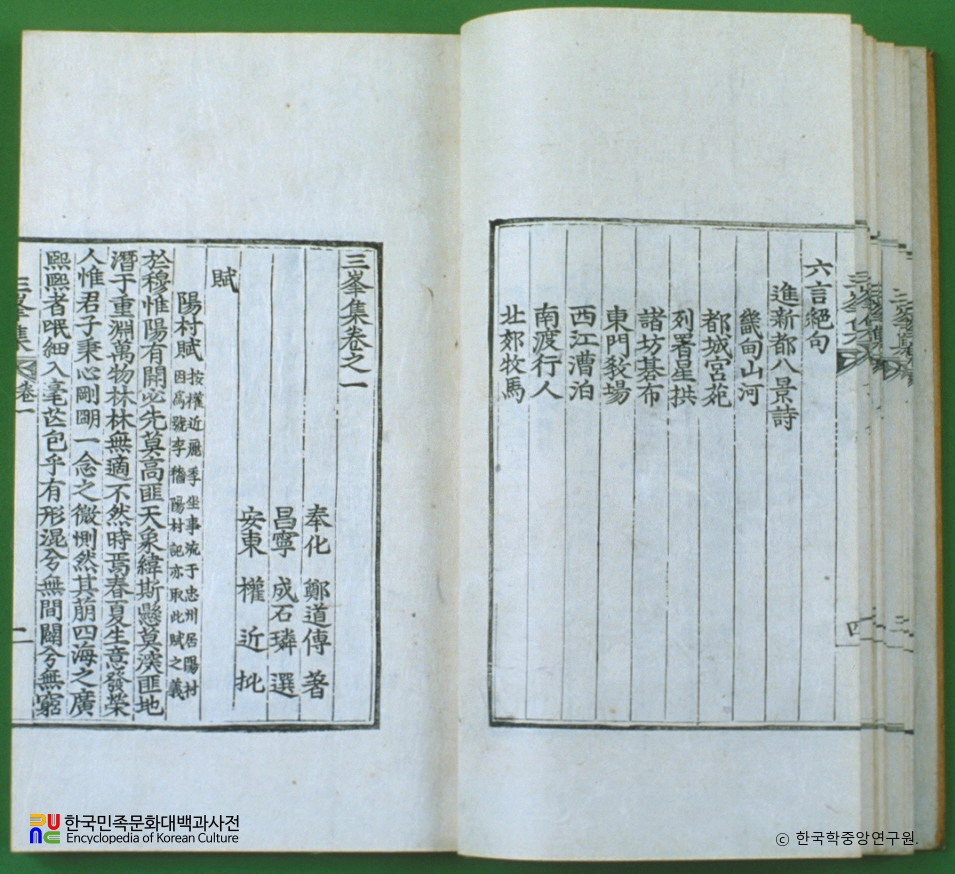 六言絕句
進新都八景詩
畿甸山河
都城宮苑
列署星拱
諸坊碁布
東門敎場
西江漕泊
南渡行人
北郊牧馬
三峯集卷之一
奉化 鄭道傳 著
昌寧 成石璘 選
安東 權近 批
賦
陽村賦 按權近季坐事流于忠州居陽村
因爲號李穡陽村記亦取此賦之義
於穆惟陽有開必先莫高匪天象緯斯懸莫深匪地
潛于重淵萬物林林無適不然時焉春夏生意發榮
人惟君子秉心剛明一念之微惻然其萌四海之廣
熙熙者氓細入毫芒包乎有形混兮無間闢兮無窮
三峯集 卷一 一
한국민족문화대백과사전
Encyclopedia of Korean Culture
© 한국학중앙연구원.